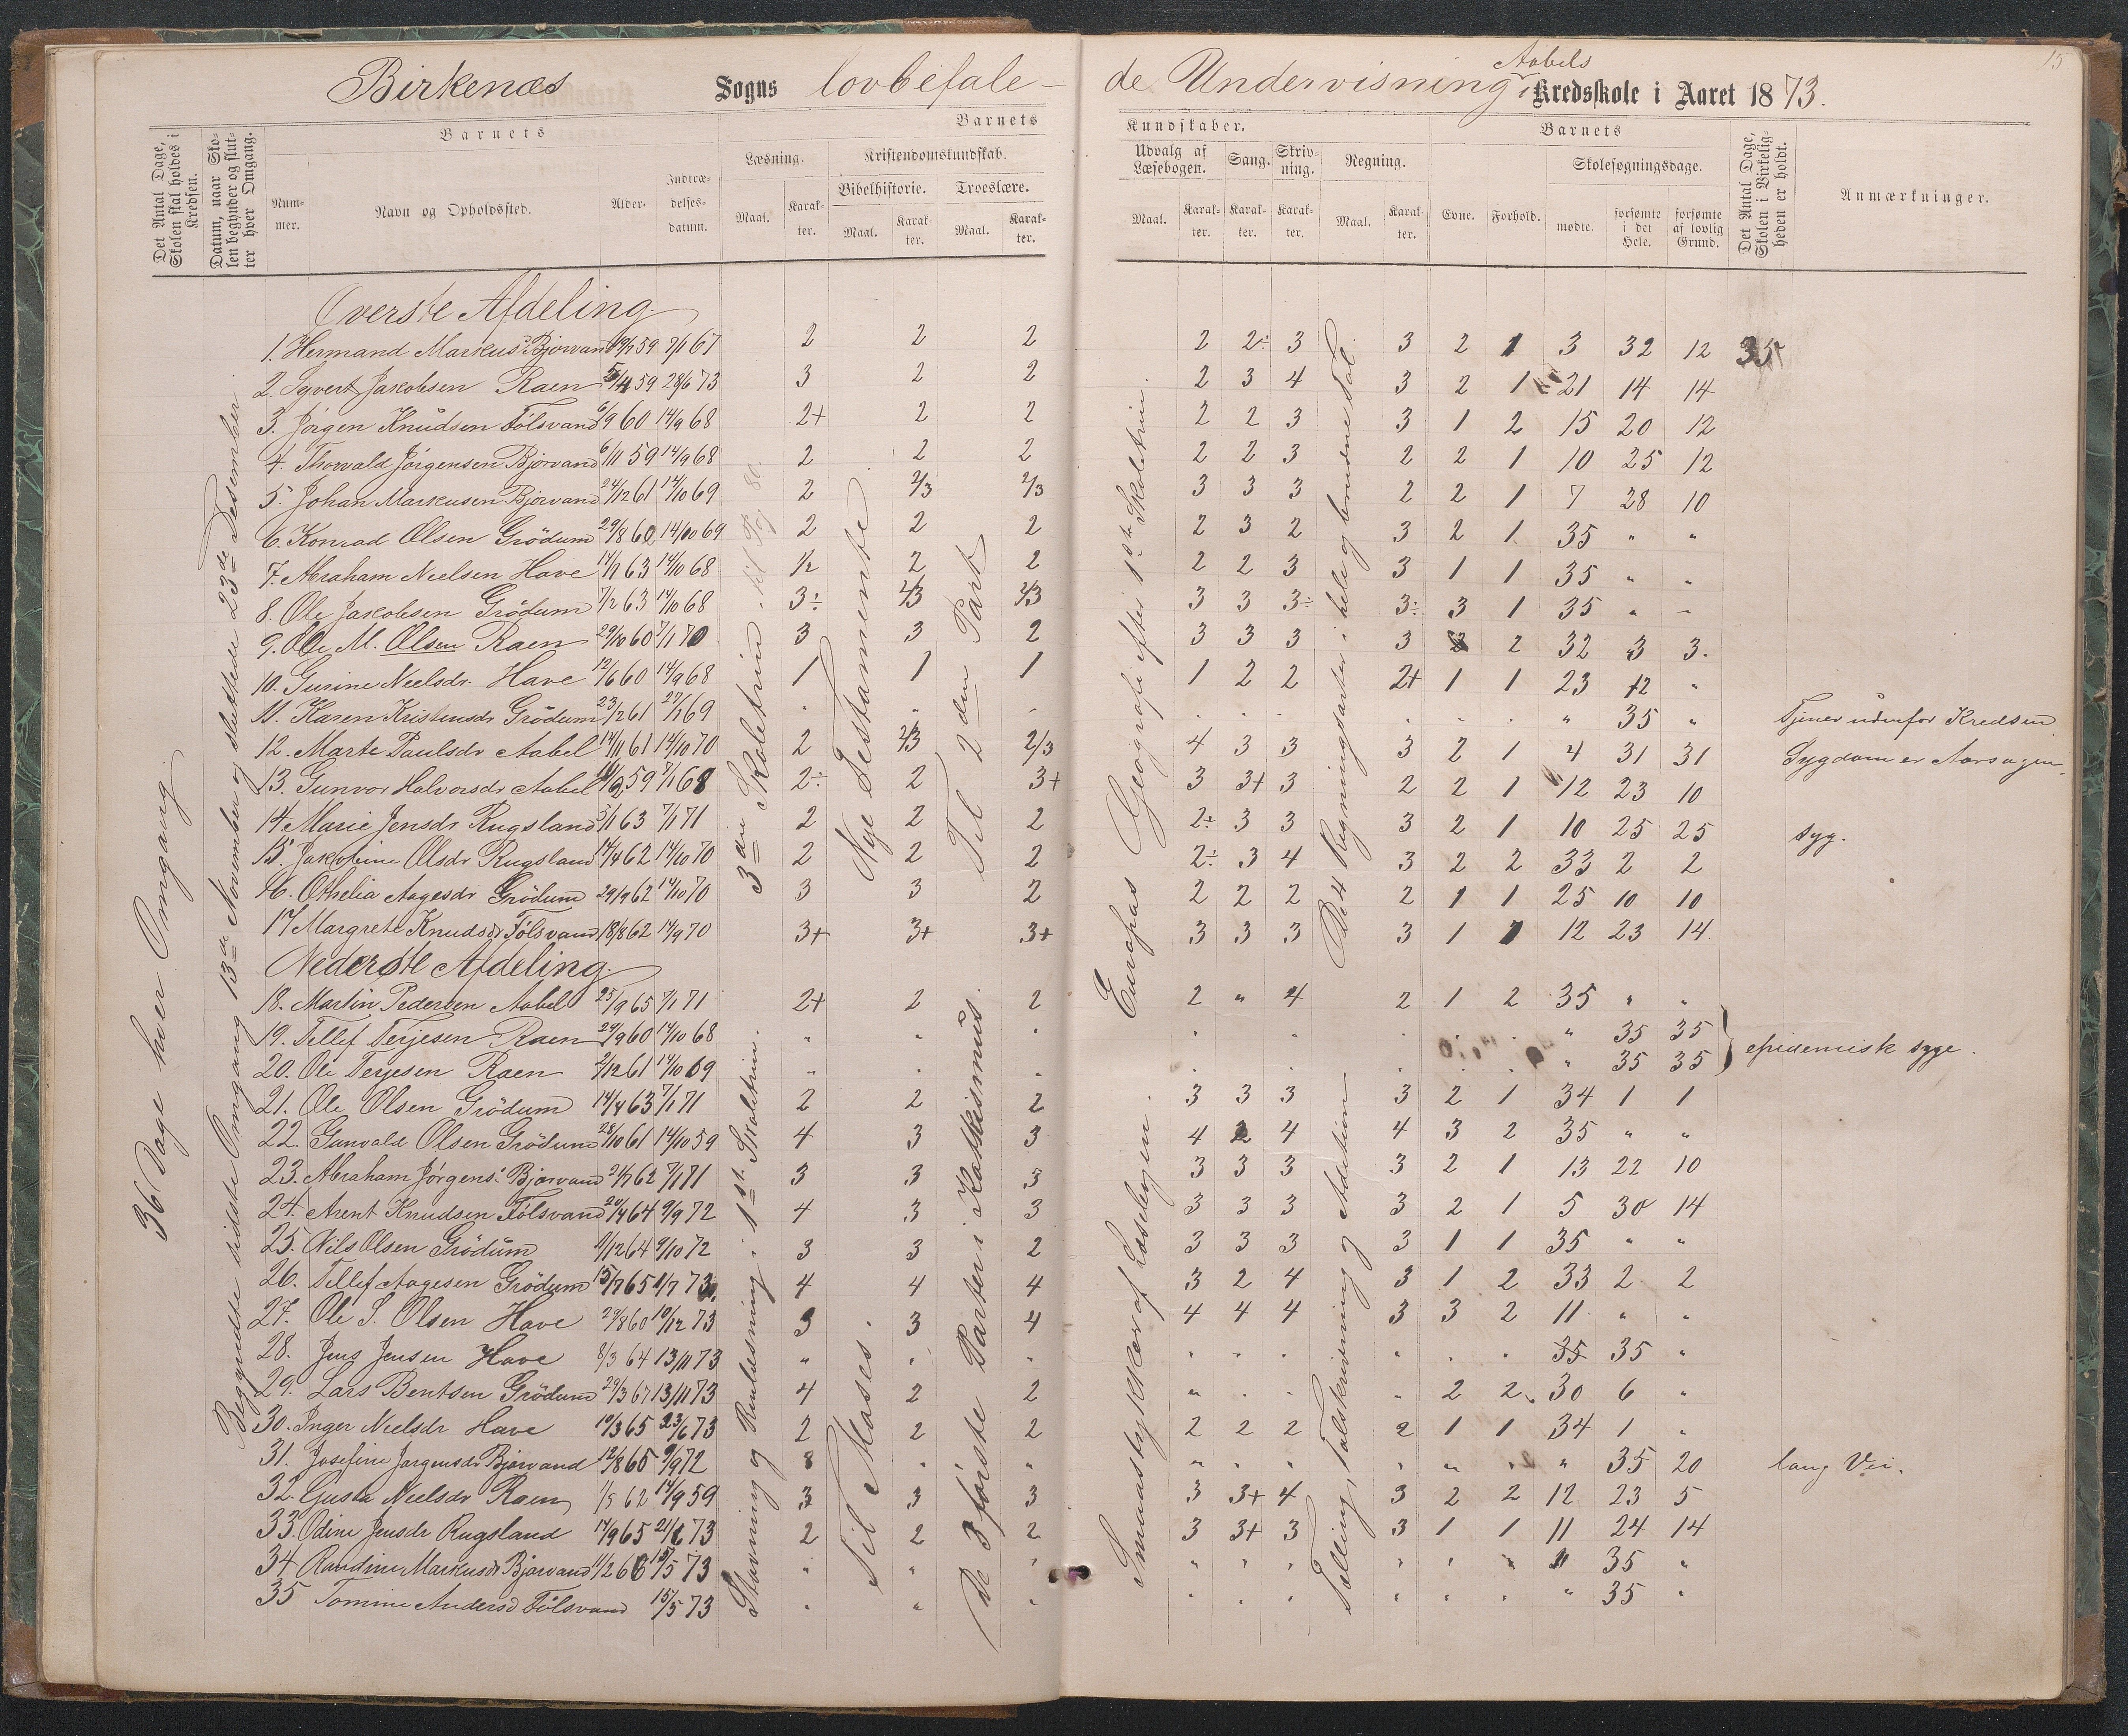 Birkenæs Sogns lovbefale- de Undervisning i Aabels Kredsskole i Aaret 1873.
15
Det Antal Dage, Skolen skal holdes i Kredsen.
Datum, naar Skolen begynder og slutter hver Omgang.
Barnets
Nummer.
Navn og Opholdssted.
Alder.
Indtrædelsesdatum.
Barnets
Læsning.
Maal.
Karakter.
Kristendomskundskab.
Bibelhistorie.
Maal.
Karakter.
Troeslære.
Maal.
Karakter.
Kundskaber.
Udvalg af Læsebogen.
Maal.
Karakter.
Sang.
Karakter.
Skrivning.
Karakter.
Regning.
Maal.
Karakter.
Barnets
Evne.
Forhold.
Skolesøgningsdage.
mødte.
forsømte i det Hele.
forsømte af lovlig Grund.
Det Antal Dage, Skolen i Virkeligheden er holdt.
Anmærkninger.
36 Dage hver Omgang.
Begyndte sidste Omgang 13de November og sluttede 23de Desember.
Øverste Afdeling.
3die Skoletrin til Pag 80.
Nye Testamente
Til 2den Part
Europas Geografi efter 1ste Skoletrin.
De 4 Regningsarter i hele og benævnte Tal.
1. Hermand Markus: Bjorvand 19/7 59 7/1 67 2 2 2 2 2÷ 3 3 2 1 3 32 12 35
2. Syvert Jakobsen Raen 5/4 59 28/6 73 3 2 2 2 3 4 3 2 1 21 14 14
3. Jörgen Knudsen Fölsvand 6/9 60 14/9 68 2+ 2 2 2 2 3 3 1 2 15 20 12
4. Thorvald Jörgensen Bjorvand 6/11 59 14/9 68 2 2 2 2 2 3 2 2 1 10 25 12
5. Johan Markusen Bjorvand 24/12 61 14/10 69 2 2/3 2/3 3 3 3 2 2 1 7 28 10
6. Konrad Olsen Grödum 29/8 60 14/10 69 2 2 2 2 3 2 3 2 1 35 " "
7. Abraham Nielsen Have 14/11 63 14/10 68 1/2 2 2 2 2 3 3 1 1 35 " "
8. Ole Jakobsen Grödum 7/2 63 14/10 68 3÷ 2/3 2/3 3 3 3÷ 3÷ 3 1 35 " "
9. Ole M. Olsen Raen 29/10 60 7/1 70 3 3 2 3 3 3 3 3 2 32 3 3.
10. Gurine Nielsdr. Have 12/6 60 14/9 68 1 1 1 1 2 2 2+ 1 1 23 12 "
11. Karen Kristensdr Grödum 23/12 61 27/1 69 " " " " " " " " " " 35 " Tjener udenfor Kredsen
12. Marte Paulsdr Aabel 14/11 61 14/10 70 2 2/3 2/3 4 3 3 3 2 1 4 31 31 Sygdom er Aarsagen.
13. Gunvor Halvorsdr Aabel 11/2 59 7/1 68 2÷ 2 3+ 3 3+ 3 2 2 1 12 23 10
14. Marie Jensdr Rugsland 5/1 63 7/1 71 2 2 2 2÷ 3 3 3 2 1 10 25 25 syg.
15. Jakobine Olsdr Rugsland 14/4 62 14/10 70 2 2 2 2÷ 3 4 3 2 2 33 2 2
16. Othelia Aagesdr Grödum 29/9 62 14/10 70 3 3 2 2 2 2 2 1 1 25 10 10
17 Margrete Knudsdr Fölsvand 18/8 62 14/9 70 3+ 3+ 3+ 3 3 3 3 1 1 12 23 14.
Nederste Afdeling.
Stavning og Renlæsning i 1ste Skoletrin.
Til Moses.
De 3 förste Parter i Katkismus.
Smaastykker af Læsebogen.
Tælling, Talskrivning og Adition
18. Martin Pedersen Aabel 25/9 65 7/1 71 2+ 2 2 2 " 4 2 1 2 35 " "
19. Tellef Terjesen Raen 29/9 60 14/10 68 " " " " " " " " " 35 35
20. Ole Terjesen Raen 2/12 61 14/10 69 " " " " " " " " " 35 35 epidemisk syge.
21. Ole Olsen Grödum 14/4 63 7/1 71 2 2 2 3 3 3 3 2 1 34 1 1
22. Gunvald Olsen Grödum 28/10 61 14/10 59 4 3 3 4 2 4 4 3 2 35 " "
23. Abraham Jörgens: Bjorvand 24/7 62 7/1 71 3 3 3 3 3 3 3 2 1 13 22 10
24. Arent Knudsen Fölsvand 20/4 64 9/9 72 4 3 3 3 3 3 3 2 1 5 30 14
25. Nils Olsen Grödum 1/12 64 9/10 72 3 3 2 3 3 3 3 1 1 35 " "
26. Tellef Aagesen Grödum 15/7 65 1/7 73. 4 4 4 3 2 4 3 1 2 33 2 2
27. Ole S. Olsen Have 29/8 60 10/12 73 3 3 4 4 4 4 3 3 2 11 " "
28. Jens Jensen Have 8/3 64 13/11 73 " " " " " " " " " 35 35 "
29. Lars Bentsen Grödum 29/3 67 13/11 73 4 2 2 " " " " 2 2 30 6 "
30. Inger Nielsdr Have 10/3 65 23/6 73 2 2 2 2 2 2 2 1 1 34 1 "
31. Josefine Jorgensdr Bjorvand 12/8 65 9/9 72 8 " " " " " " " " " 35 20 lang Vei.
32. Gusta Nielsdr Raen 1/5 62 14/9 59 3 3 3 3 3+ 4 3 2 2 12 23 5
33. Odine Jensdr Rugsland 14/9 65 21/6 73 2 2 2 3 3+ 3 3 1 1 11 24 14
34 Randine Markusdr Bjorvand 11/2 66 15/5 73 " " " " " " " " " " 35 "
35 Tomine Andersd Fölsvand 15/5 73 " " " " " " " " " " 35 "